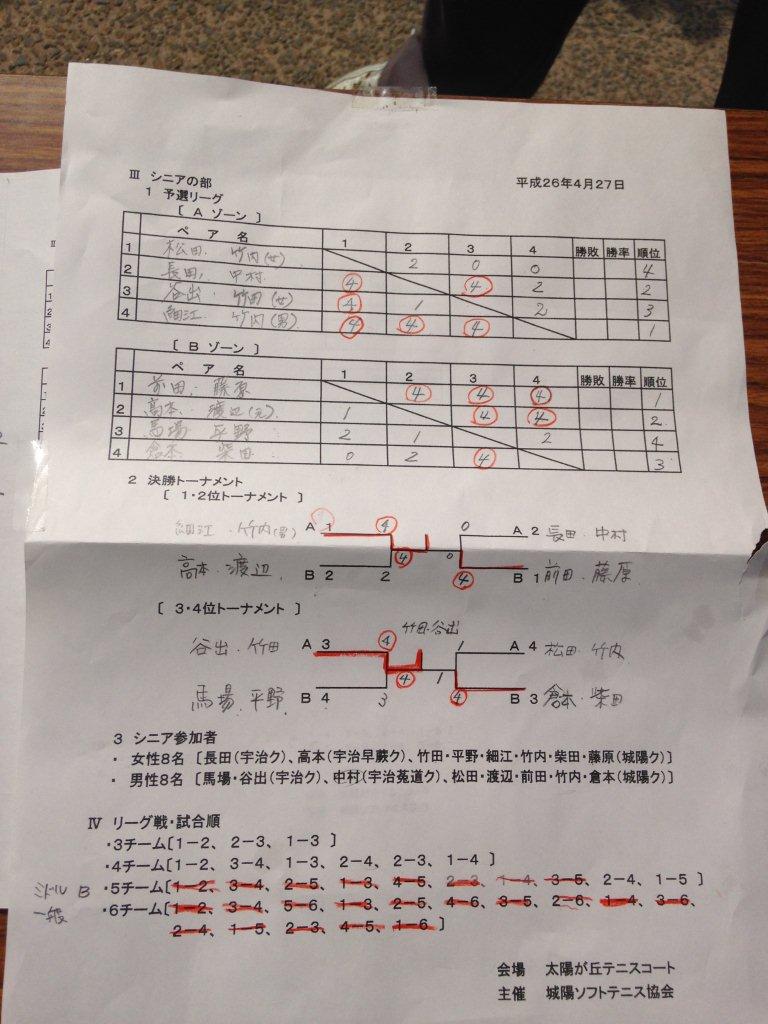 Ⅲ シニアの部
平成26年4月27日
1 予選リーグ
〔 A ゾーン 〕
ペア名 1 2 3 4 勝敗 勝率 順位
1 松田. 竹内(女) 2 0 0 4
2 長田, 中村 4 4 2 2
3 谷出. 竹田(女) 4 1 2 3
4 細江. 竹内(男) 4 4 4 1
〔 B ゾーン 〕
ペア名 1 2 3 4 勝敗 勝率 順位
1 前田. 藤原 4 4 4 1
2 高本. 渡辺 1 4 4 2
3 馬場 平野 2 1 2 4
4 倉本 柴田 0 2 4 3
2 決勝トーナメント
〔 1・2位トーナメント 〕
細江・竹内(男) A 1 4 0 A 2 長田・中村
4 0
高本・渡辺 B 2 2 4 B 1 前田・藤原
〔 3・4位トーナメント 〕
竹田・谷出
谷出・竹田 A 3 4 1 A 4 松田・竹内
4 1
馬場・平野 B 4 3 4 B 3 倉本・柴田
3 シニア参加者
・ 女性8名 〔長田(宇治ク)、高本(宇治早蕨ク)、竹田・平野・細江・竹内・柴田・藤原(城陽ク)〕
・ 男性8名 〔馬場・谷出(宇治ク)、中村(宇治菟道ク)、松田・渡辺・前田・竹内・倉本(城陽ク)〕
Ⅳ リーグ戦・試合順
・3チーム〔1－2、 2－3、 1－3 〕
・4チーム〔1－2、 3－4、 1－3、 2－4、 2－3、 1－4 〕
ミドル B ・5チーム〔1－2、 3－4、 2－5、 1－3、 4－5、 2－3、 1－4、 3－5、 2－4、 1－5 〕
一般 ・6チーム〔1－2、 3－4、 5－6、 1－3、 2－5、 4－6、 3－5、 2－6、 1－4、 3－6、
2－4、 1－5、 2－3、 4－5、 1－6 〕
会場 太陽が丘テニスコート
主催 城陽ソフトテニス協会